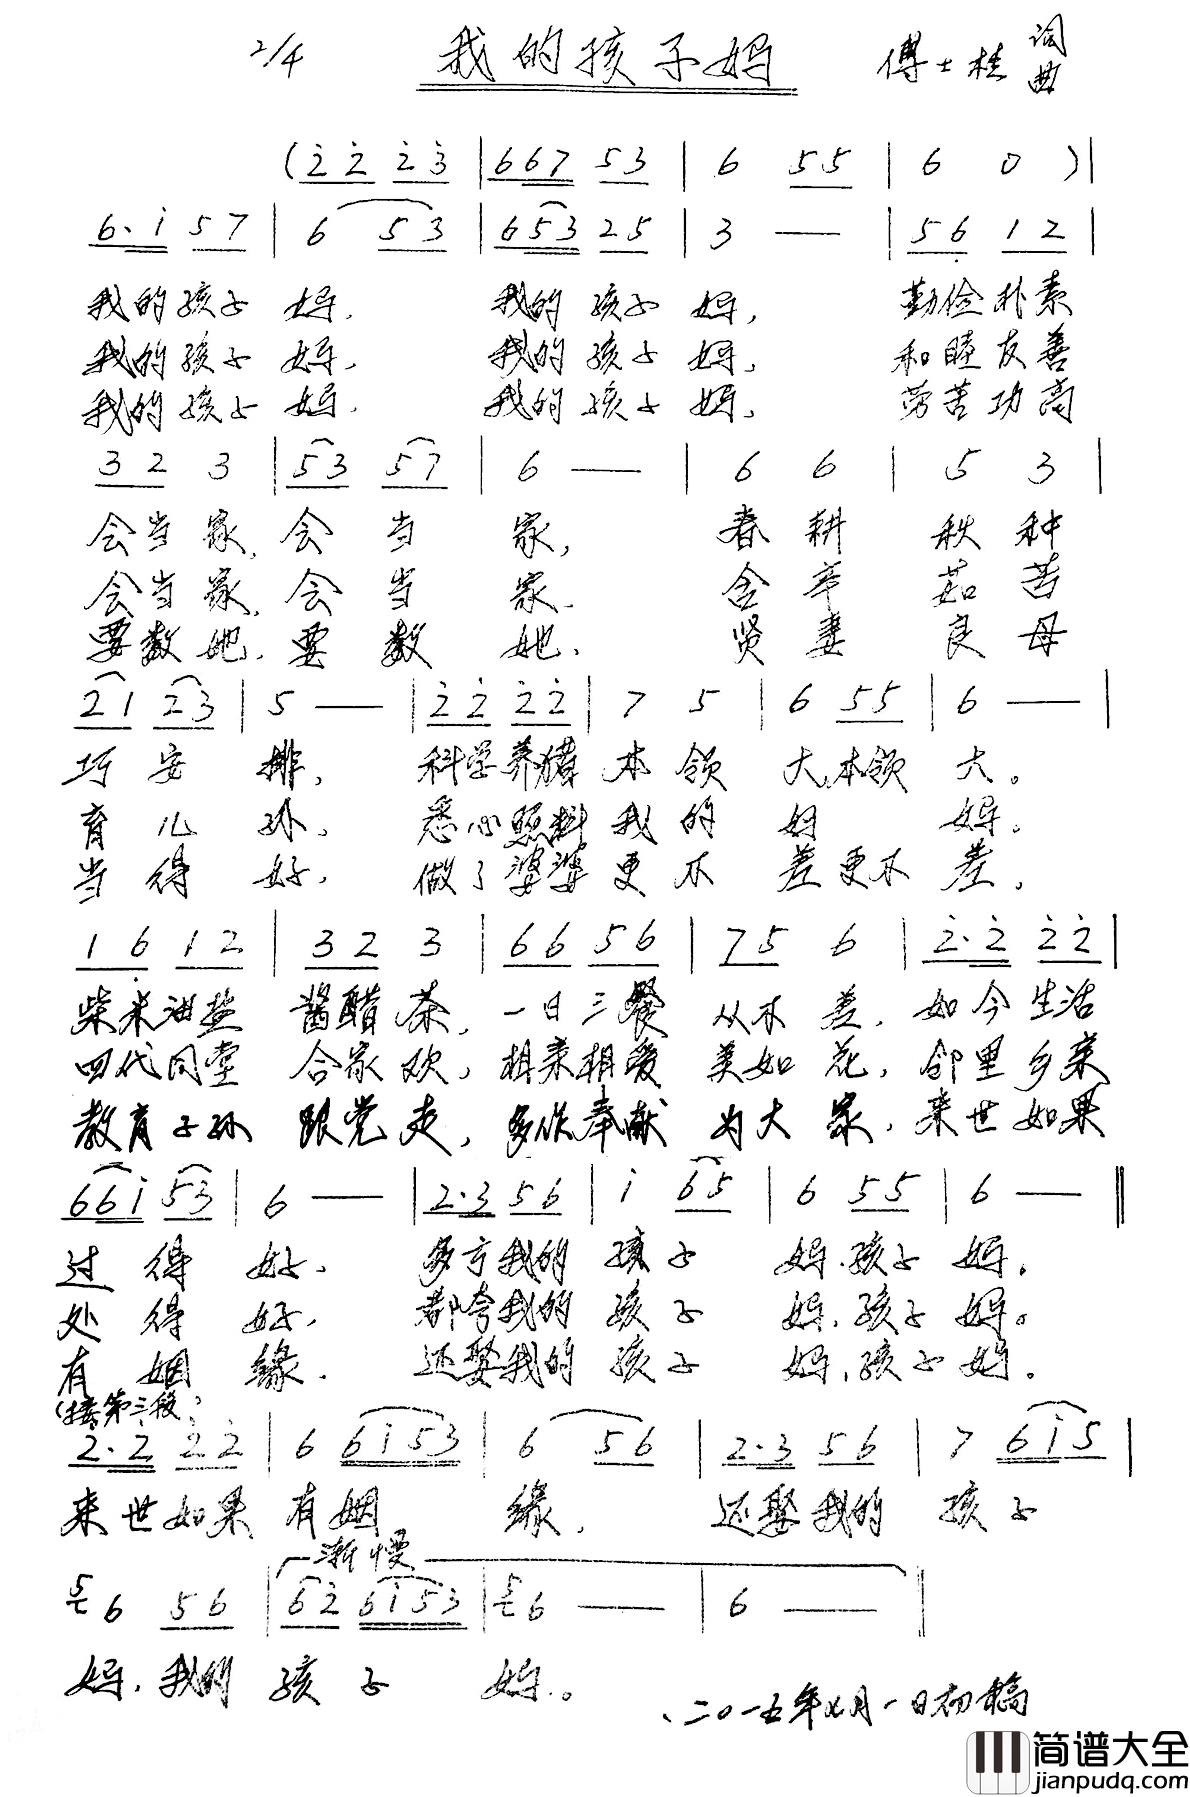 2/4 我的孩子妈 傅士桂 词曲
(2̇ 2̇ 2̇ 3̇ | 6 6 7 5 3 | 6 5 5 | 6 0 ) |
6. i̇ 5 7 | 6 5 3 | 6 5 3 2 5 | 3 — | 5 6̣ 1 2 |
我的孩子 妈, 我的孩子 妈, 勤俭朴素
我的孩子 妈, 我的孩子 妈, 和睦友善
我的孩子 妈, 我的孩子 妈, 劳苦功高
3 2 3 | 5 3 5 7 | 6 — | 6 6 | 5 3 |
会当家,会 当 家, 春耕 秋种
会当家,会 当 家. 含辛 茹苦
要数她.要 数 她. 贤妻 良母
2 1 2 3 | 5 — | 2̇ 2̇ 2̇ 2̇ | 7 5 | 6 5 5 | 6 — |
巧安排, 科学养猪本领大,本领大。
育儿孙、 悉心照料我的妈 妈。
当得好, 做了婆婆更不差更不差,
1 6̣ 1 2 | 3 2 3 | 6 6 5 6 | 7 5 6 | 2̇. 2̇ 2̇ 2̇ |
柴米油盐 酱醋茶, 一日三餐 从不差, 如今生活
四代同堂 合家欢, 相亲相爱 美如花, 邻里乡亲
教育子孙 跟党走, 多作奉献 为大家, 来世如果
6 6 i̇ 5 3 | 6 — | 2. 3 5 6 | i̇ 6 5 | 6 5 5 | 6 — ‖
过得好. 多亏我的孩子 妈.孩子妈.
处得好, 都夸我的孩子 妈,孩子妈。
有姻缘. 还娶我的孩子 妈,孩子妈。
(接第三段)
2̇. 2̇ 2̇ 2̇ | 6 6 i̇ 5 3 | 6 5 6 | 2. 3 5 6 | 7 6 i̇ 5 |
来世如果有姻 缘, 还娶我的 孩子
渐慢
6 5 6 | 6 2̇ 6 i̇ 5 3 | 6 — | 6 — ‖
妈,我的 孩 子 妈。
二0一五年七月一日初稿
简谱大全
jianpudq.com